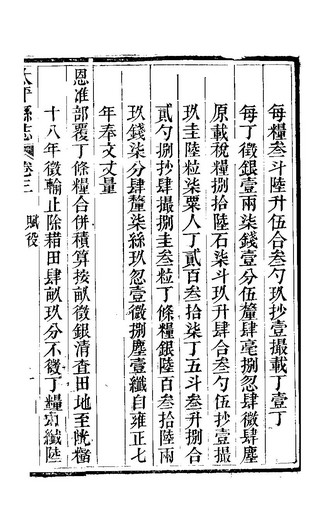 每糧叁斗陸升伍合叁勺玖抄壹撮載丁壹丁
每丁徵銀壹兩柒錢壹分伍釐肆毫捌忽肆微肆塵
原載稅糧捌拾陸石柒斗玖升肆合叁勺伍抄壹撮
玖圭陸粒柒粟人丁貳百叁拾柒丁五斗叁升捌合
貳勺捌抄肆撮捌圭叁粒丁條糧銀陸百叁拾陸兩
玖錢柒分肆釐柒絲玖忽壹微捌塵壹纖自雍正七
年奉文丈量
恩准部覆丁條糧合併積算按畝徵銀清查田地至
十八年徵輸止除藉田肆畝玖分不徵丁糧
太平縣志
卷三
賦役